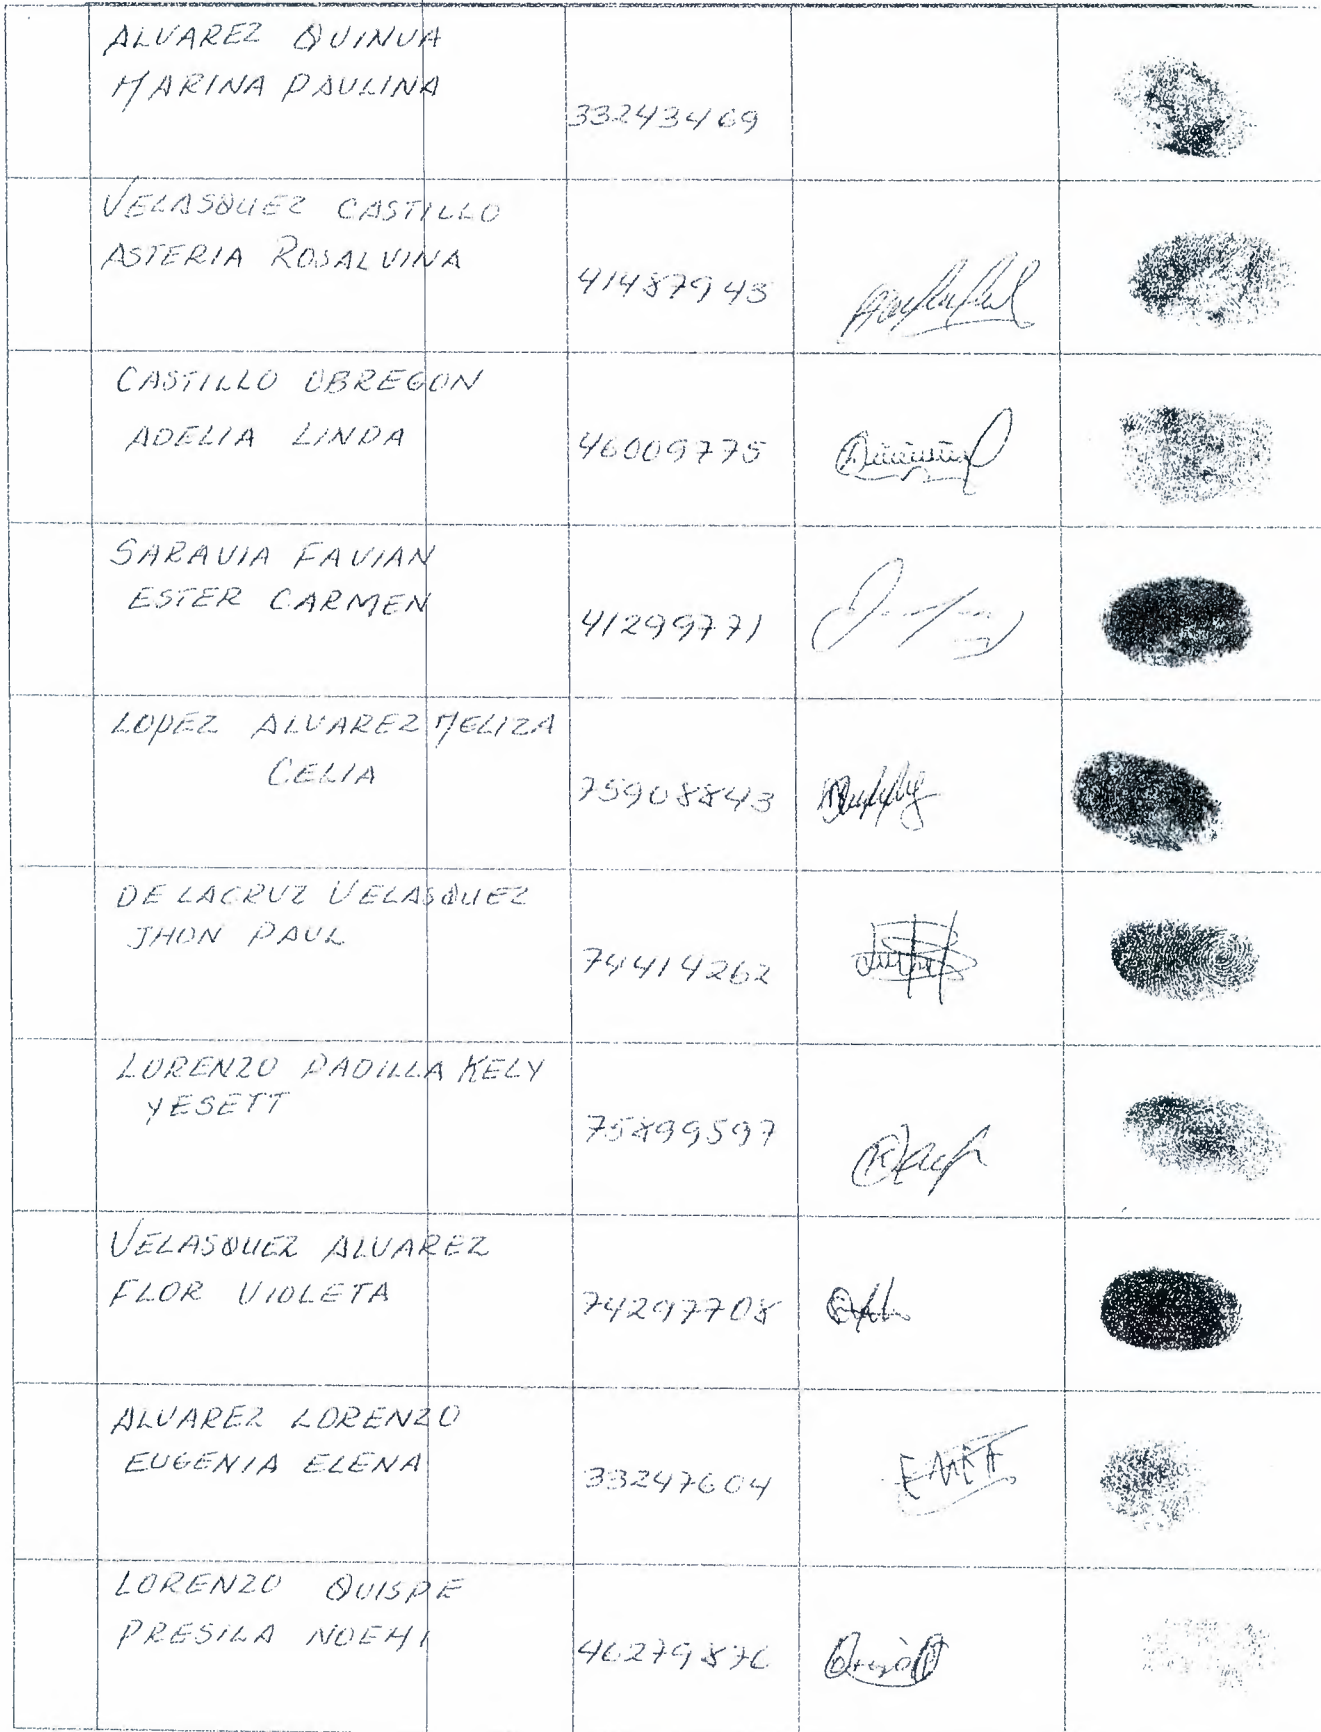 ALVAREZ QUINUA
MARINA PAULINA
33243469
VELASQUEZ CASTILLO
ASTERIA ROSALVINA
41487943
CASTILLO OBREGON
ADELIA LINDA
46009775
SARAVIA FAVIAN
ESTER CARMEN
41299771
LOPEZ ALVAREZ MELIZA
CELIA
75908843
DE LACRUZ VELASQUEZ
JHON PAUL
74414262
LORENZO PADILLA KELY
YESETT
75899597
VELASQUEZ ALVAREZ
FLOR VIOLETA
74297708
ALVAREZ LORENZO
EUGENIA ELENA
33247604
LORENZO QUISPE
PRESILA NOEMI
46279876